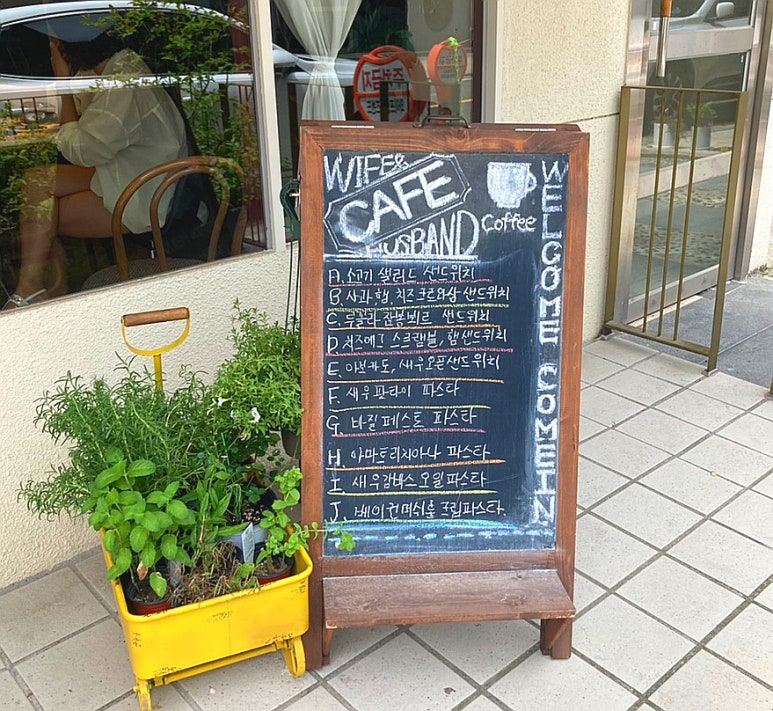 WIFE&
CAFE
HUSBAND
Coffee
WELCOME COMEIN
A. 소고기 샐러드 샌드위치
B. 사과, 햄, 치즈 크로와상 샌드위치
C. 루꼴라 잠봉뵈르 샌드위치
D. 치즈에그 스크램블, 햄 샌드위치
E. 아보카도, 새우 오픈샌드위치
F. 새우 팟타이 파스타
G. 바질 페스토 파스타
H. 아마트리치아나 파스타
I. 새우감바스 오일 파스타
J. 베이컨 머쉬룸 크림파스타